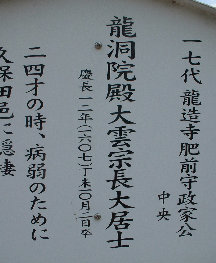 一七代 龍造寺肥前守政家公
中央
龍洞院殿大雲宗長大居士
慶長一二年(一六〇七)丁未一〇月二日卒
二四才の時、病弱のために
久保田邑に隠棲